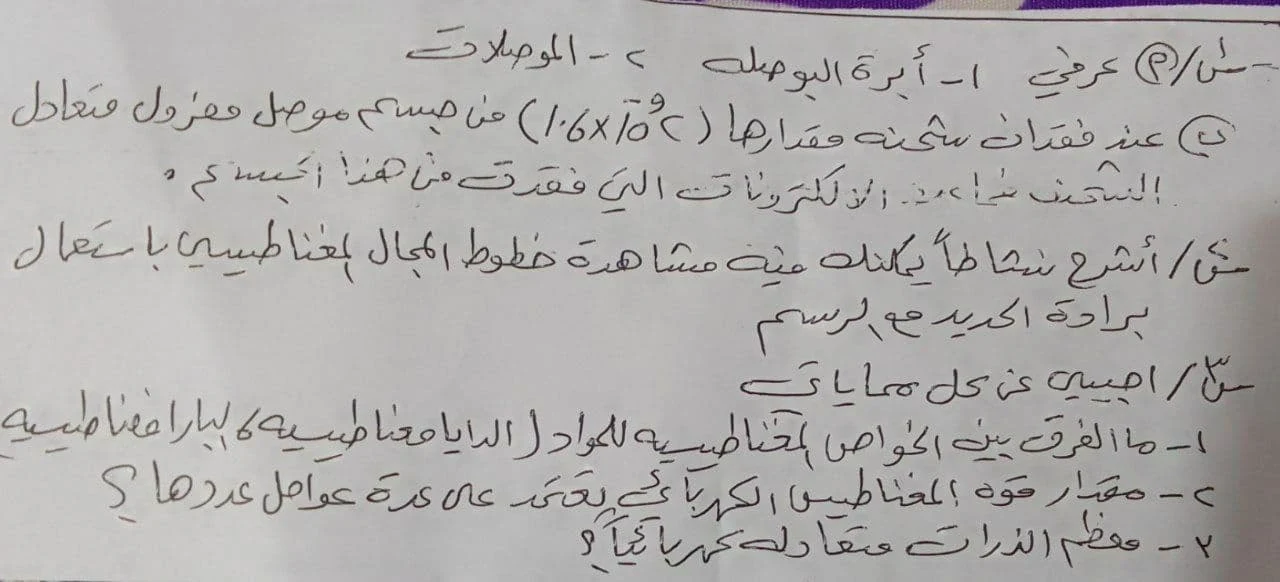 س١/ (٩) عرفي ١- أبرة البوصله ٢- الموصلات
ب) عند فقدان شحنه مقدارها (1.6x10⁻⁹ C) من جسم موصل معزول متعادل
الشحنه ما عدد الالكترونات التي فقدت من هذا الجسم .
س٢/ أشرح نشاطاً يمكنك منه مشاهدة خطوط المجال المغناطيسي باستعمال
برادة الحديد مع الرسم
س٣/ اجيبي عن كل مما ياتي
١- ما الفرق بين الخواص المغناطيسيه للمواد الدايا مغناطيسيه والبارا مغناطيسيه
٢- مقدار قوه المغناطيس الكهربائي يعتمد على عدة عوامل عددها ؟
٣- معظم الذرات متعادله كهربائياً ؟